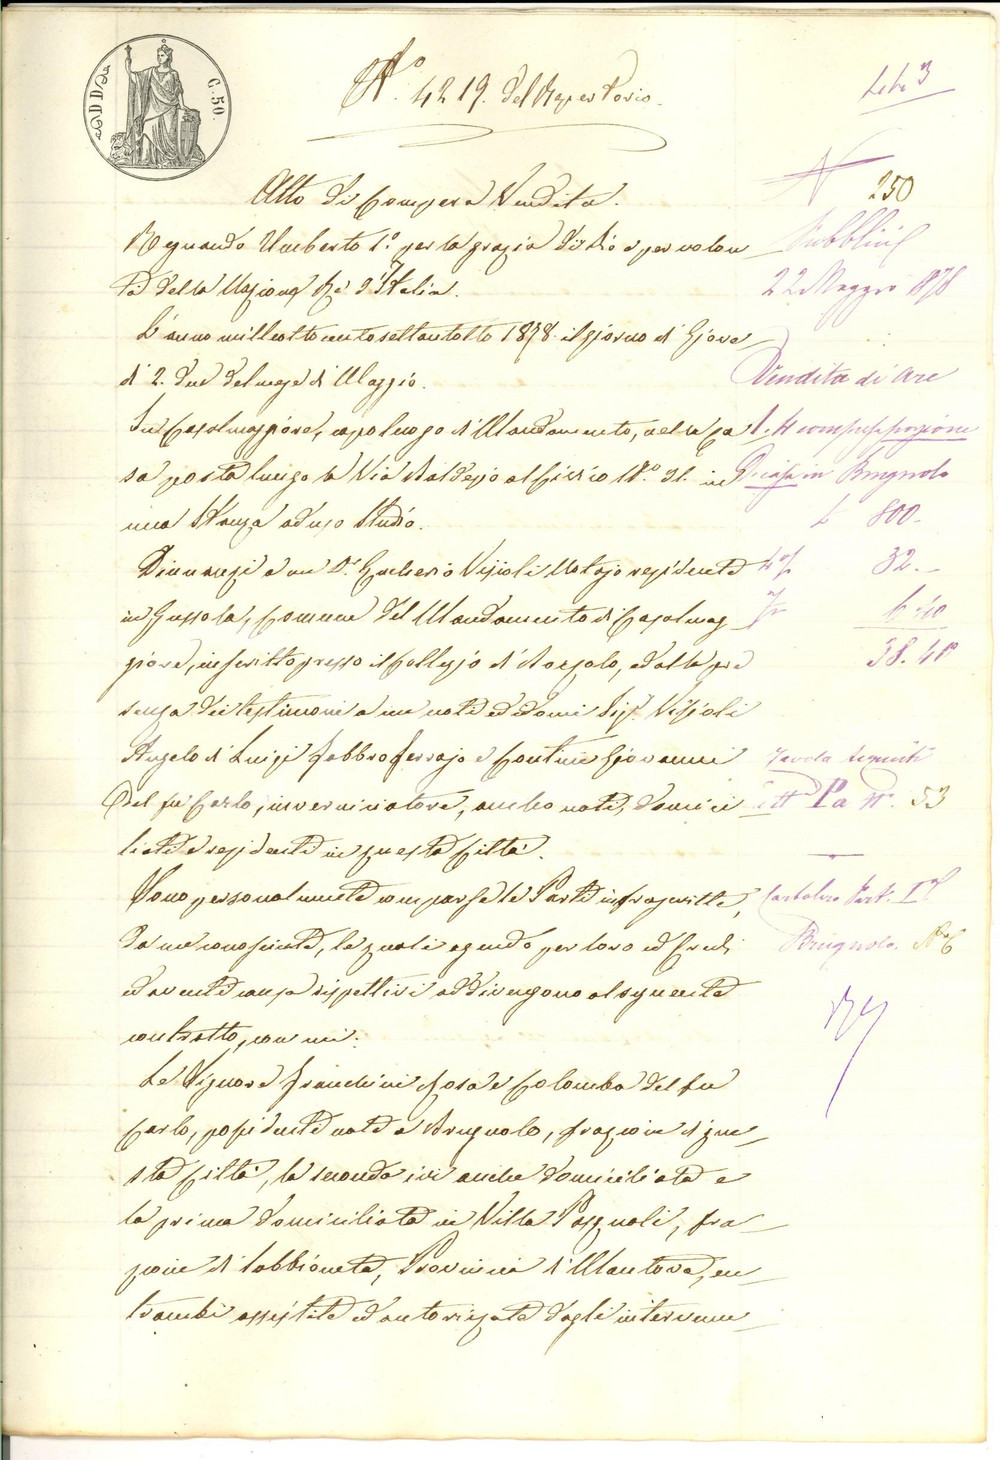 C. 50.
N.° 4219. del Repertorio.
Lib. 3
N 250
Atto di Compera Vendita.
Regnando Umberto I.° per la grazia di Dio e per volon
tà della Nazione Re d'Italia.
L'anno milleottocentosettantotto 1878. il giorno di Giove
dì 2. due del mese di Maggio.
In Casalmaggiore, capoluogo di Mandamento, nella ca
sa posta lungo la Via Baldesio al Civico N.° 31. in
una Stanza ad uso Studio.
Dinanzi a me D.r Guglielmo Vigioli Notajo residente
in Gussola, Comune del Mandamento di Casalmag
giore, inscritto presso il Collegio di Bozzolo, ed alla pre
senza dei testimonii a me noti ed idonei Sig.i Vigioli
Angelo di Luigi fabbro ferrajo e Contini Giovanni
del fu Carlo, inverniciatore, ambo noti, domici
liati e residenti in questa Città.
Sono personalmente comparse le Parti infrascritte,
da me conosciute, le quali agendo per loro ed Eredi
ed aventi causa rispettivi addivengono al seguente
contratto, con cui:
Le Signore Franchini Rosa e Colomba del fu
Carlo, possidenti nate a Brugnolo, frazione di que
sta Città, la seconda ivi anche domiciliata e
la prima domiciliata in Villa Pasquali, fra
zione di Sabbioneta, Provincia di Mantova, en
trambi assistite ed autorizzate dagli intervenu
22 Maggio 1878
Vendita di are
1.4 compresa porzione
di casa in Brugnolo
L 800.-
4% 32.-
6.40
38.40
Tavola
Pa N. 53
Catalogo Part. I
Brugnolo. N.° 6